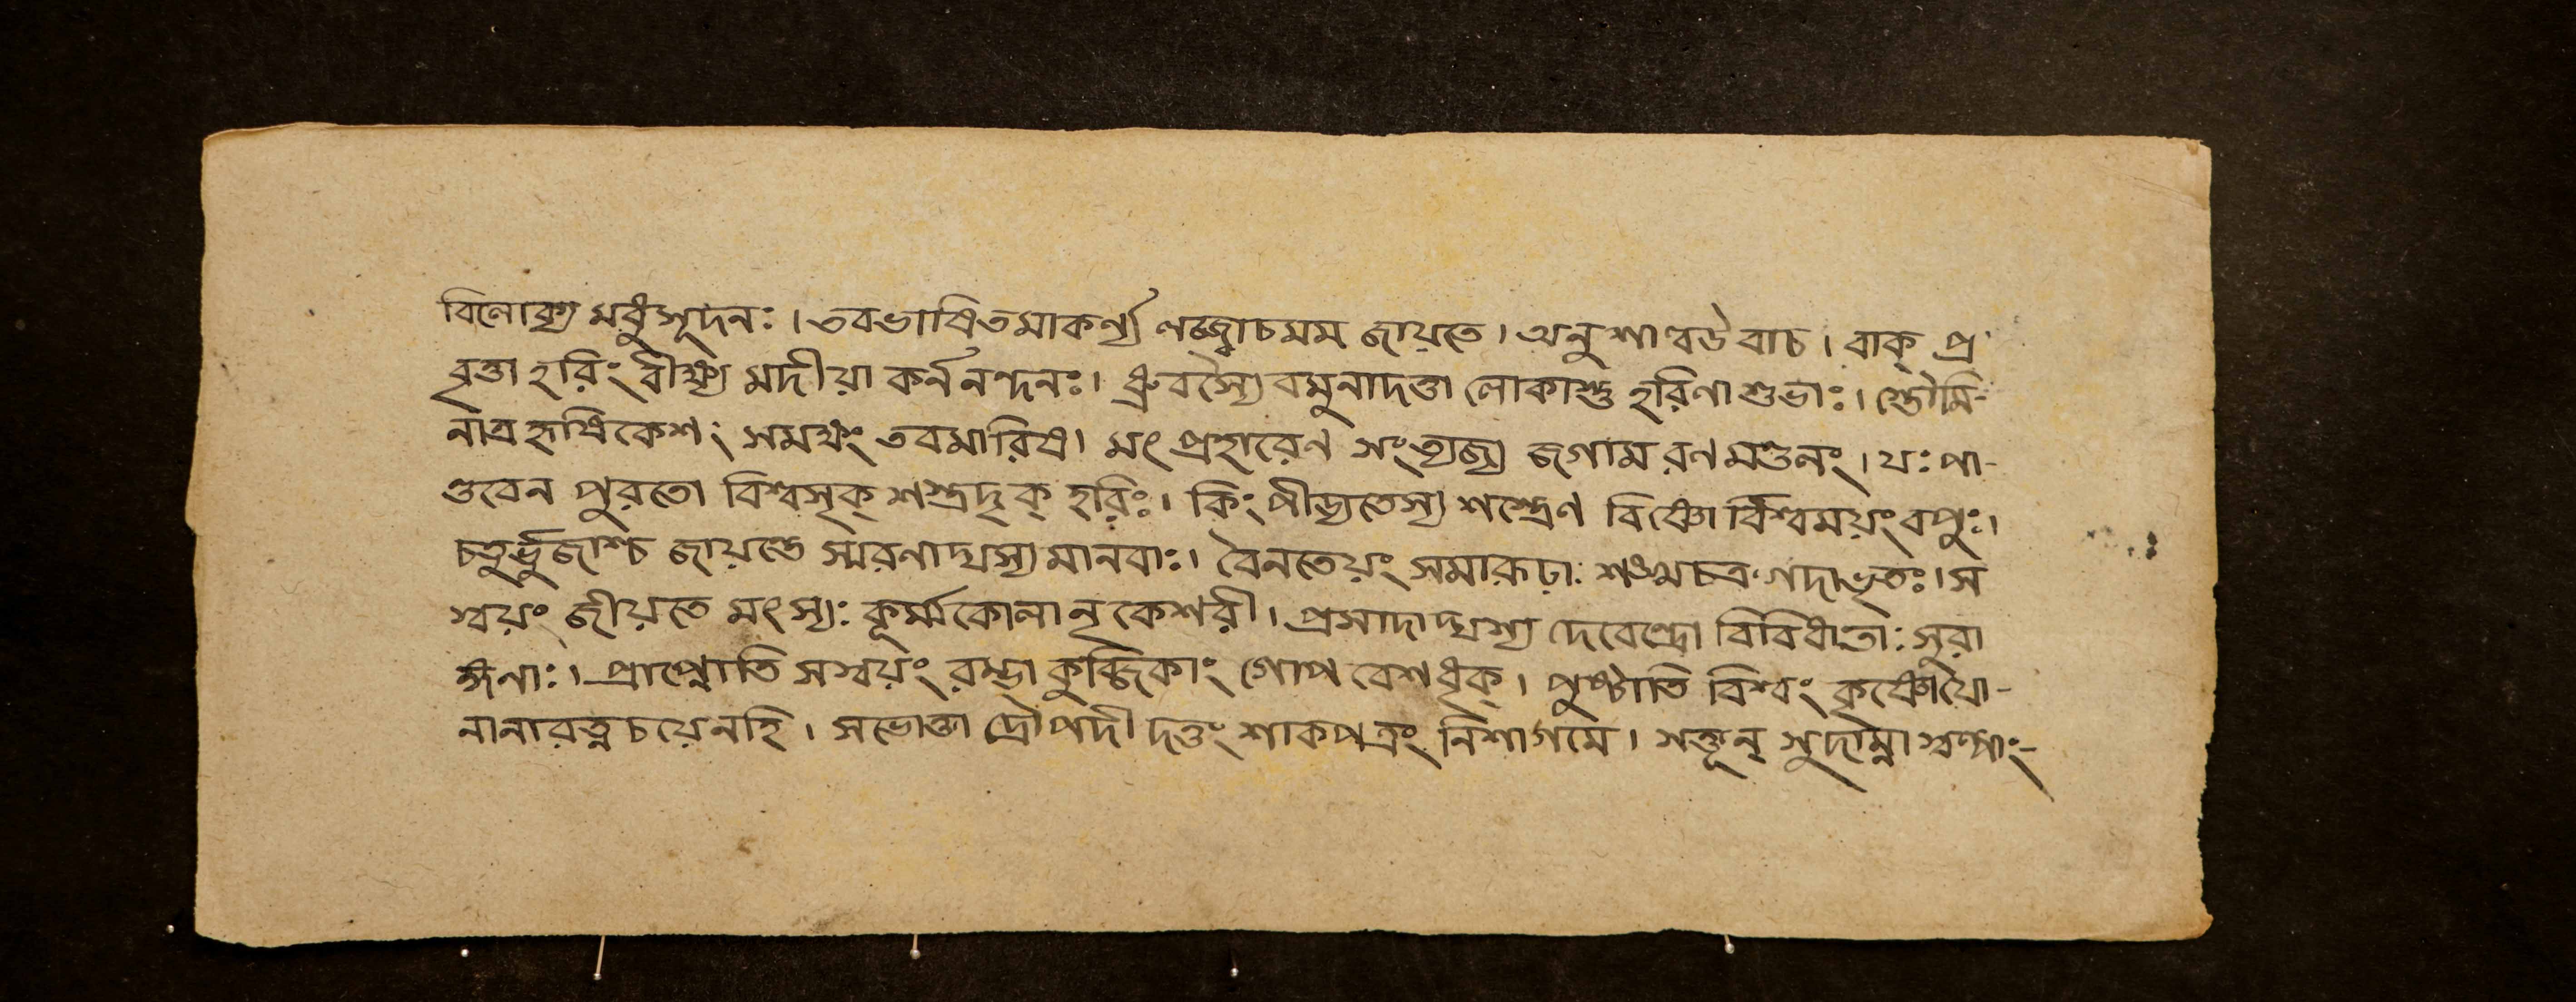 বিলোক্য মধুসূদনঃ । তবভাষিতমাকর্ণ্য লজ্জাচমম জায়তে । অনুশাল্বউবাচ । বাক্ প্র
বৃত্তা হরিং বীক্ষ্য মদীয়া কর্ননন্দনঃ । ধ্রুবস্যৈ বমুনাদত্তা লোকাস্তু হরিণা শুভাঃ । স্তৌমি-
নাত্র হৃষিকেশং সমক্ষং তবমারিষ । মৎ প্রহারেণ সংত্যজ্য জগাম রণমণ্ডলং । যঃ পা-
ণ্ডবেন পুরতো বিশ্বসৃক্ শস্ত্রদৃক্ হরিঃ । কিং পীড্যতেস্য শস্ত্রেণ বিষ্ণোর্বিশ্বময়ং বপুঃ ।
চতুর্ভুজাশ্চ জায়ন্তে স্মরণাদ্যস্য মানবাঃ । বৈনতেয়ং সমারূঢাঃ শঙ্খচক্রগদাভৃতঃ । স
স্বয়ং জীয়তে মৎস্যঃ কূর্ম্মকোলানৃকেশরী । প্রসাদাদ্যস্য দেবেন্দ্রো বিবিধাতাঃ সুরা
ঙ্গনাঃ । প্রাপ্নোতি সস্বয়ং রম্ভা কুব্জিকাং গোপবেশধৃক্ । পুষ্ণাতি বিশ্বং কৃষ্ণোযো-
নানারত্নচয়েনহি । সভোক্তা দ্রৌপদী দত্তং শাকপত্রং নিশাগমে । সক্তূন্ সুদাম্না